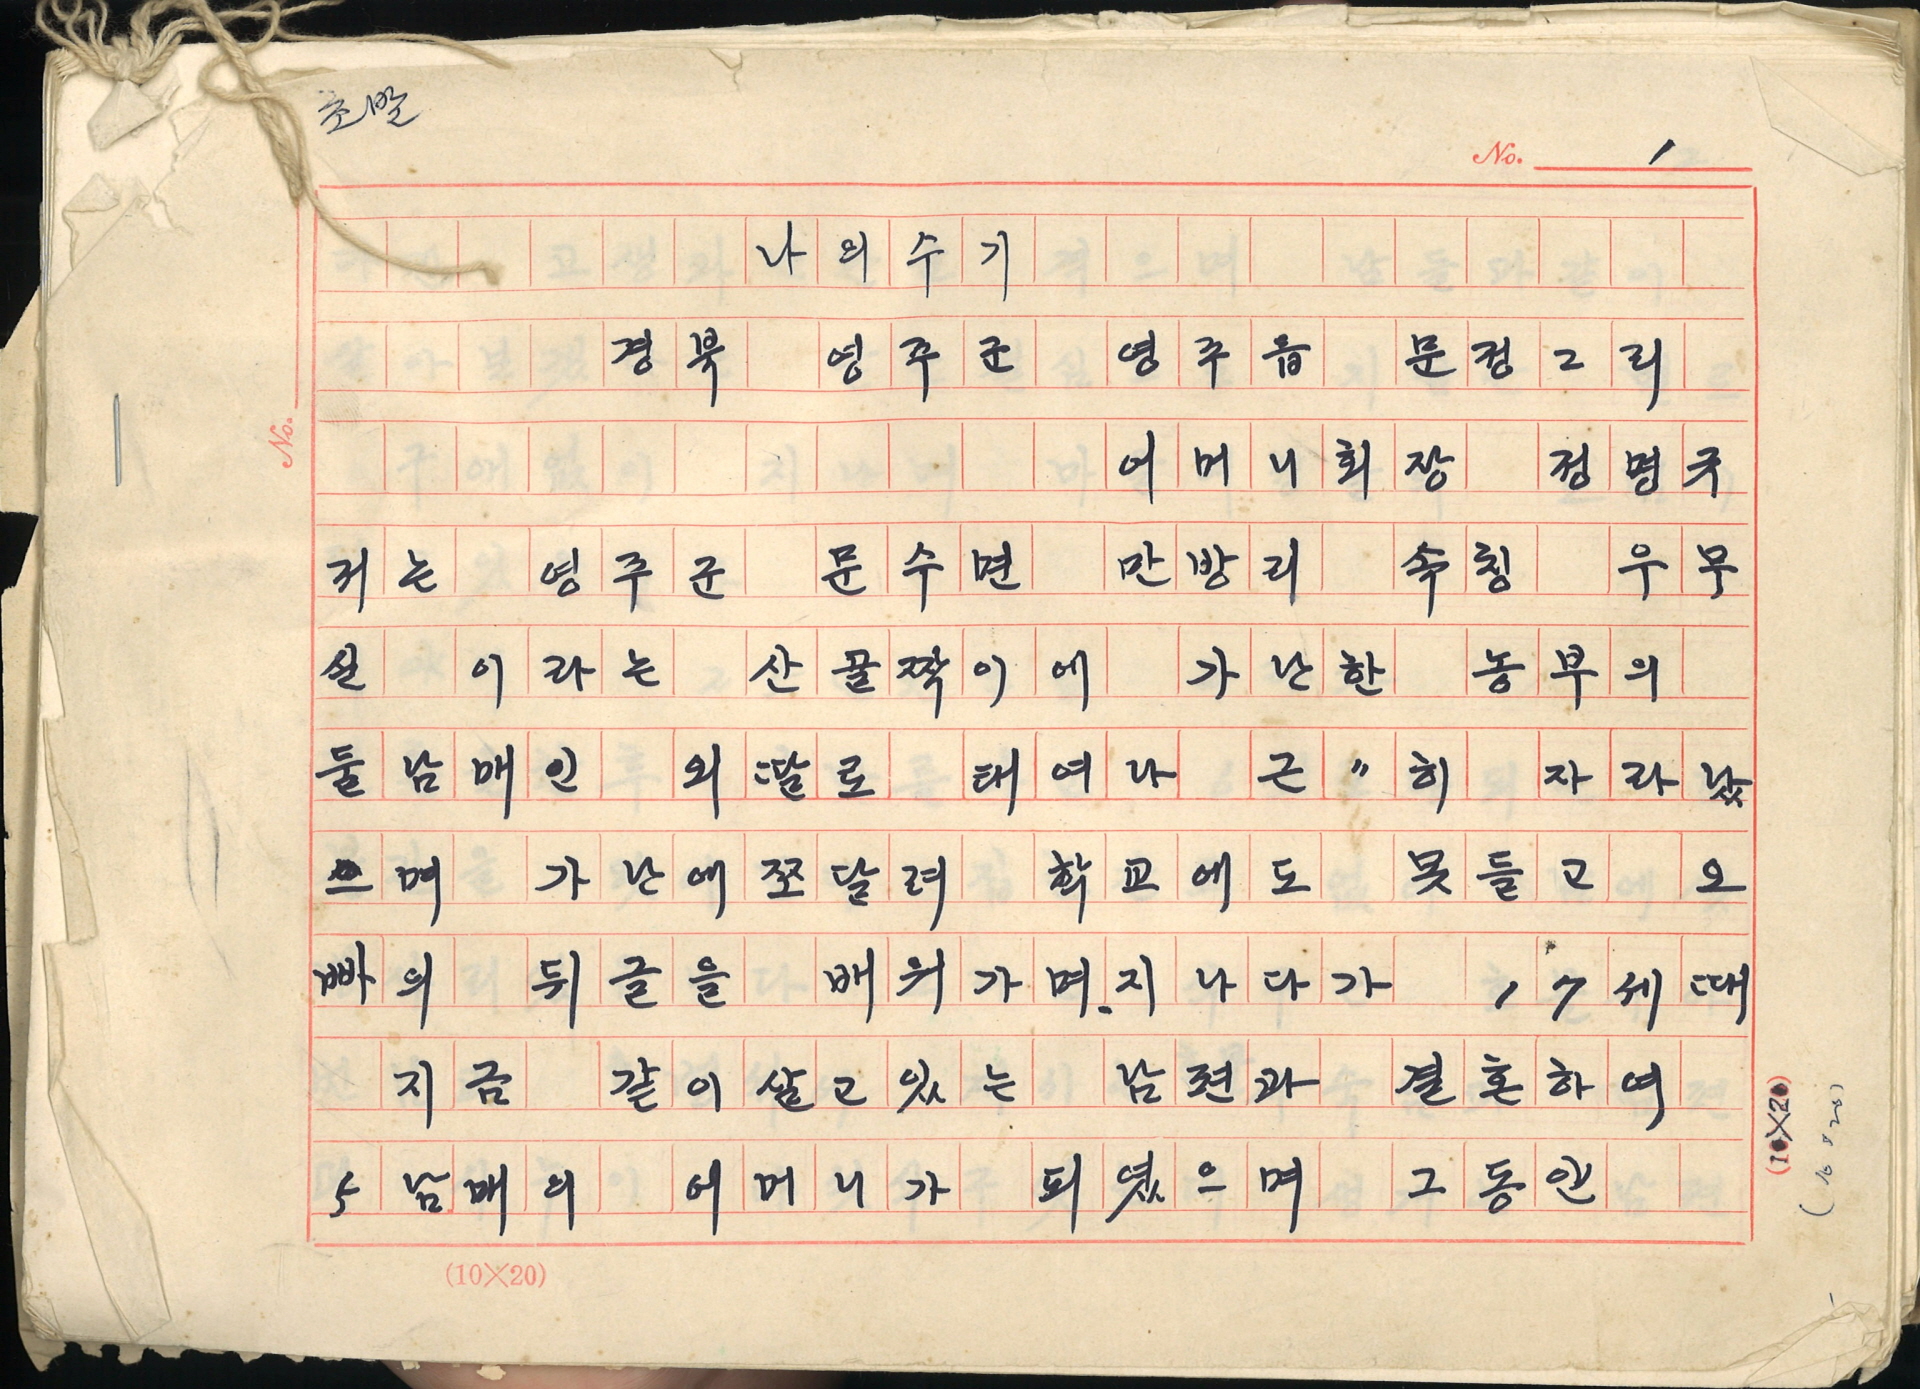 초벌
No. 1
나의수기
경북 영주군 영주읍 문정2리
어머니회장 정명국
저는 영주군 문수면 만방리 속칭 우무
실 이라는 산꼴짝이에 가난한 농부의
둘남매인 외딸로 태여나 근〃히 자라났
으며 가난에쪼달려 학교에도 못들고 오
빠의 뒤글을 배워가며.지나다가 17세때
지금 같이살고있는 남편과 결혼하여
5남매의 어머니가 되였으며 그동안
(10×20)
No.
(10×20)